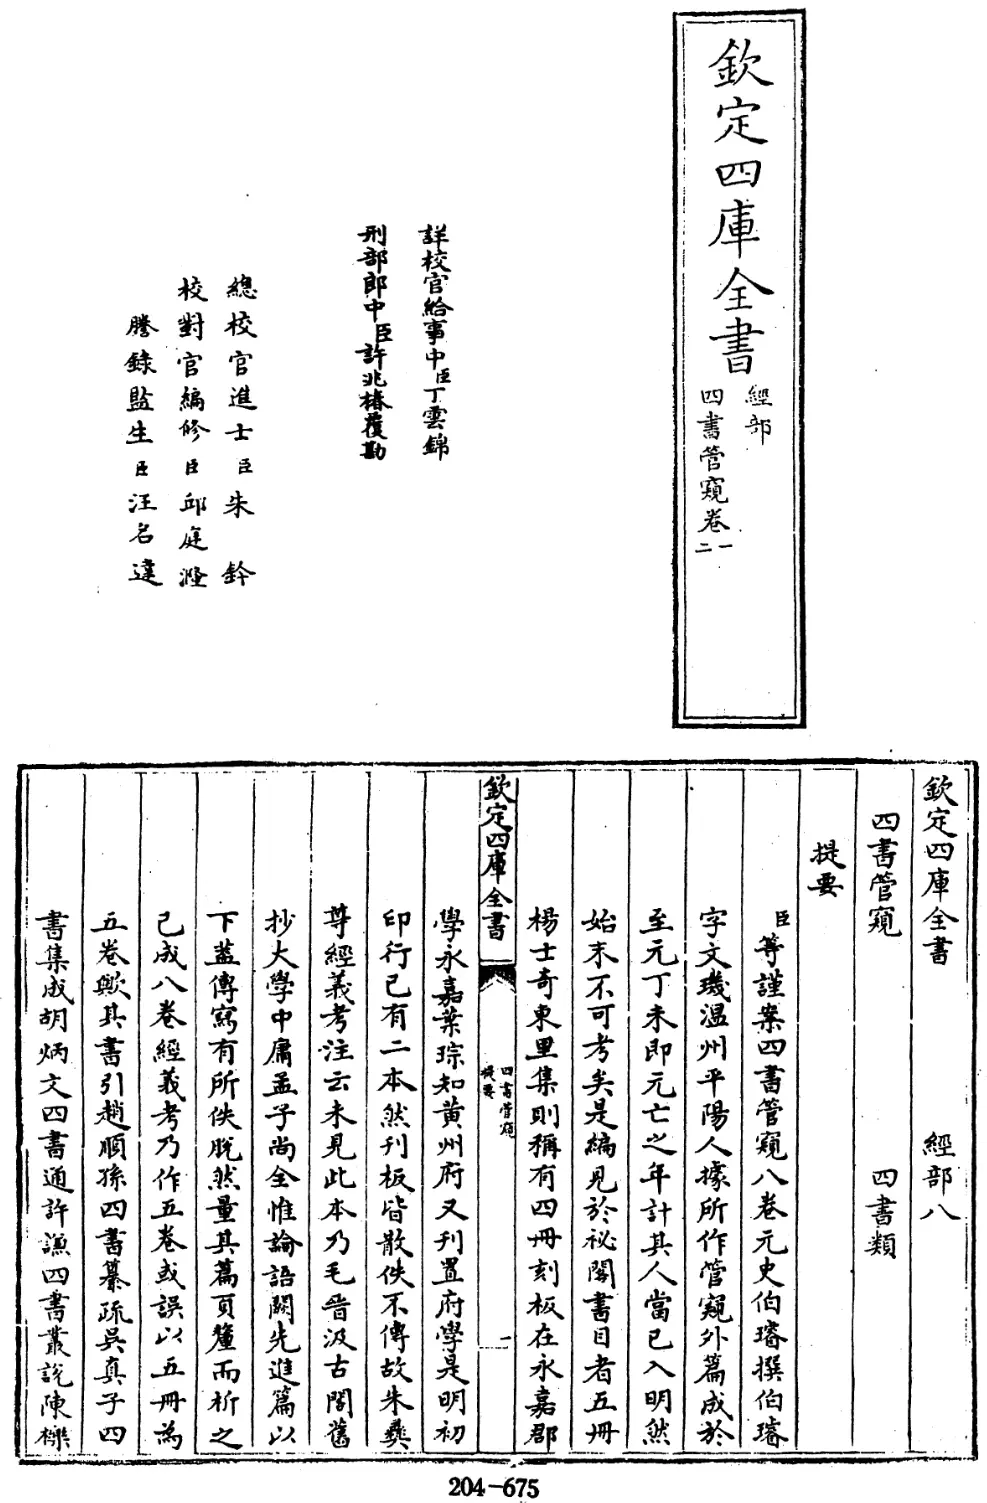 欽定四庫全書
經部
四書管窺卷一
二
詳校官給事中臣丁雲錦
刑部郎中臣許兆椿覆勘
總校官進士臣朱鈐
校對官編修臣邱庭漋
謄錄監生臣汪名達
欽定四庫全書 經部八
四書管窺 四書類
提要
臣等謹案四書管窺八卷元史伯璿撰伯璿
字文璣温州平陽人據所作管窺外篇成於
至元丁未即元亡之年計其人當已入明然
始末不可考矣是編見於祕閣書目者五冊
楊士奇東里集則稱有四冊刻板在永嘉郡
欽定四庫全書
四書管窺
提要
一
學永嘉葉琮知黄州府又刋置府學是明初
印行已有二本然刋板皆散佚不傳故朱彝
尊經義考注云未見此本乃毛晉汲古閣舊
抄大學中庸孟子尚全惟論語闕先進篇以
下蓋傳寫有所佚脱然量其篇頁釐而析之
已成八卷經義考乃作五卷或誤以五冊為
五卷歟其書引趙順孫四書纂疏吳真子四
書集成胡炳文四書通許謙四書叢說陳櫟
204-675